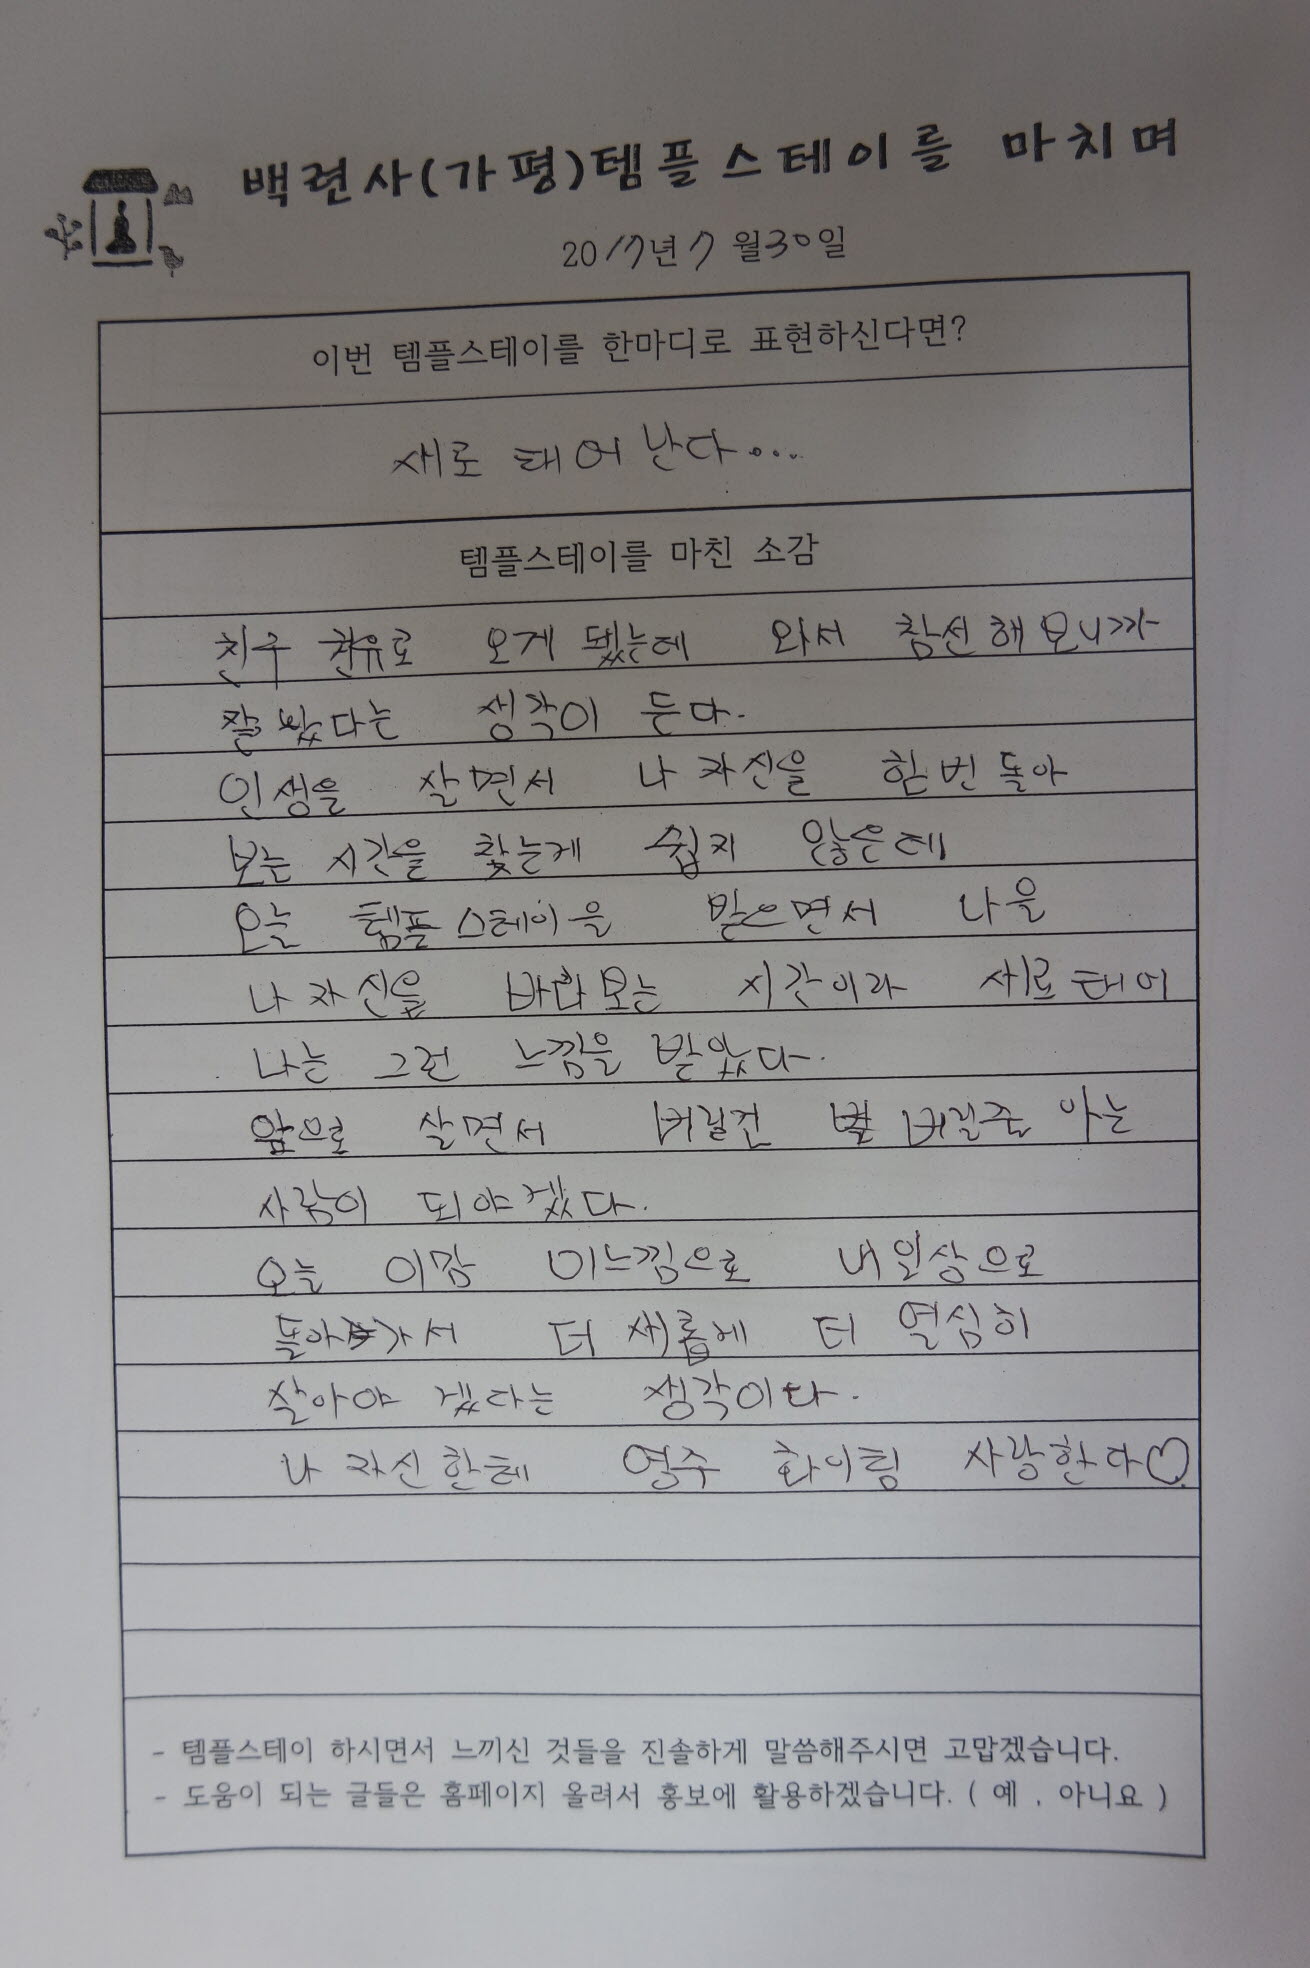 백련사(가평)템플스테이를 마치며
2017년 7월30일
이번 템플스테이를 한마디로 표현하신다면?
새로 태어난다...
템플스테이를 마친 소감
친구 권유로 오게 됐는데 와서 참선해보니까
잘 왔다는 생각이 든다.
인생을 살면서 나 자신을 한번 돌아
보는 시간을 찾는게 쉽지 않은데
오늘 템플스테이을 받으면서 나을
나 자신을 보는 시간이라 새로 태어
나는 그런 느낌을 받았다.
앞으로 살면서 버릴건 버릴줄 아는
사람이 되야겠다.
오늘 이맘 이느낌으로 내일상으로
돌아가서 더 새롭게 더 열심히
살아야 겠다는 생각이다.
나 자신한테 영주 화이팅 사랑한다♡
- 템플스테이 하시면서 느끼신 것들을 진솔하게 말씀해주시면 고맙겠습니다.
- 도움이 되는 글들은 홈페이지 올려서 홍보에 활용하겠습니다. ( 예 , 아니요 )